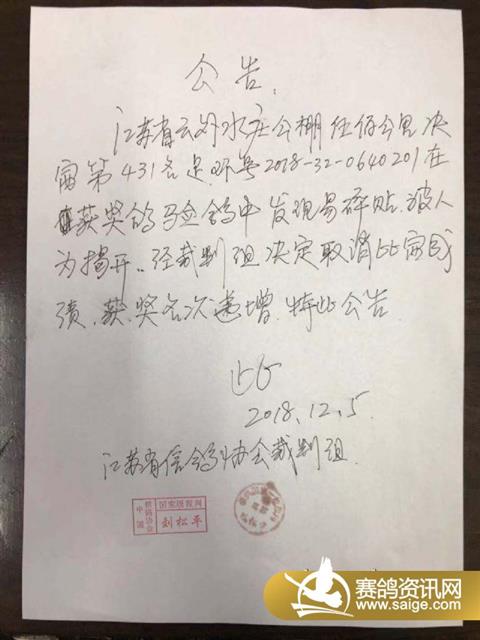 公告.
江苏省云外水庄公棚伍佰公里决
赛第431名足环号2018-32-0640201在
获奖鸽验鸽中发现易碎贴.被人
为揭开..经裁判组决定取消此富成
绩.获.奖名次递增.特此公告.
2018.12.5.
江苏省信鸽协会裁判组.
中国信鸽协会
国家级裁判
刘松平
赛鸽资讯网
www.saige.com